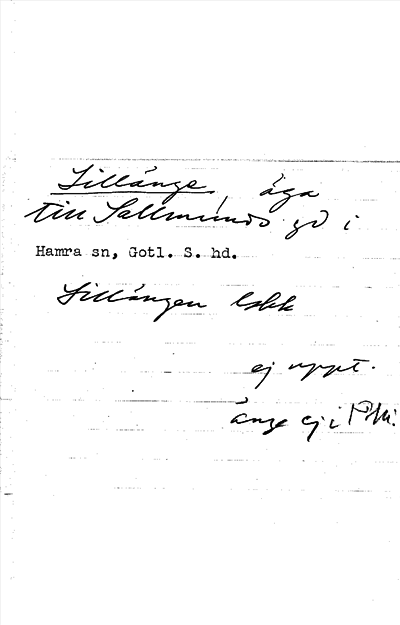 Lillänge, äga
till Sallmunds gd i
Hamra sn, Gotl. S. hd.
Lillängen lskk
ej uppt.
änge ej i PM: